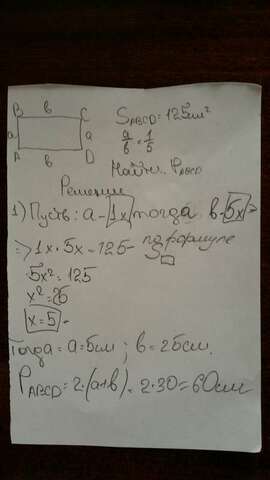 B b C
a a
A b D
S ABCD = 125см²
a/b = 1/5
Найти: P ABCD
Решение
1) Пусть: a - 1x, тогда b - 5x =
=> 1x · 5x = 125 - по формуле
S▭
5x² = 125
x² = 25
x = 5
Тогда = a = 5см ; b = 25см.
P ABCD = 2·(a+b) = 2·30 = 60см